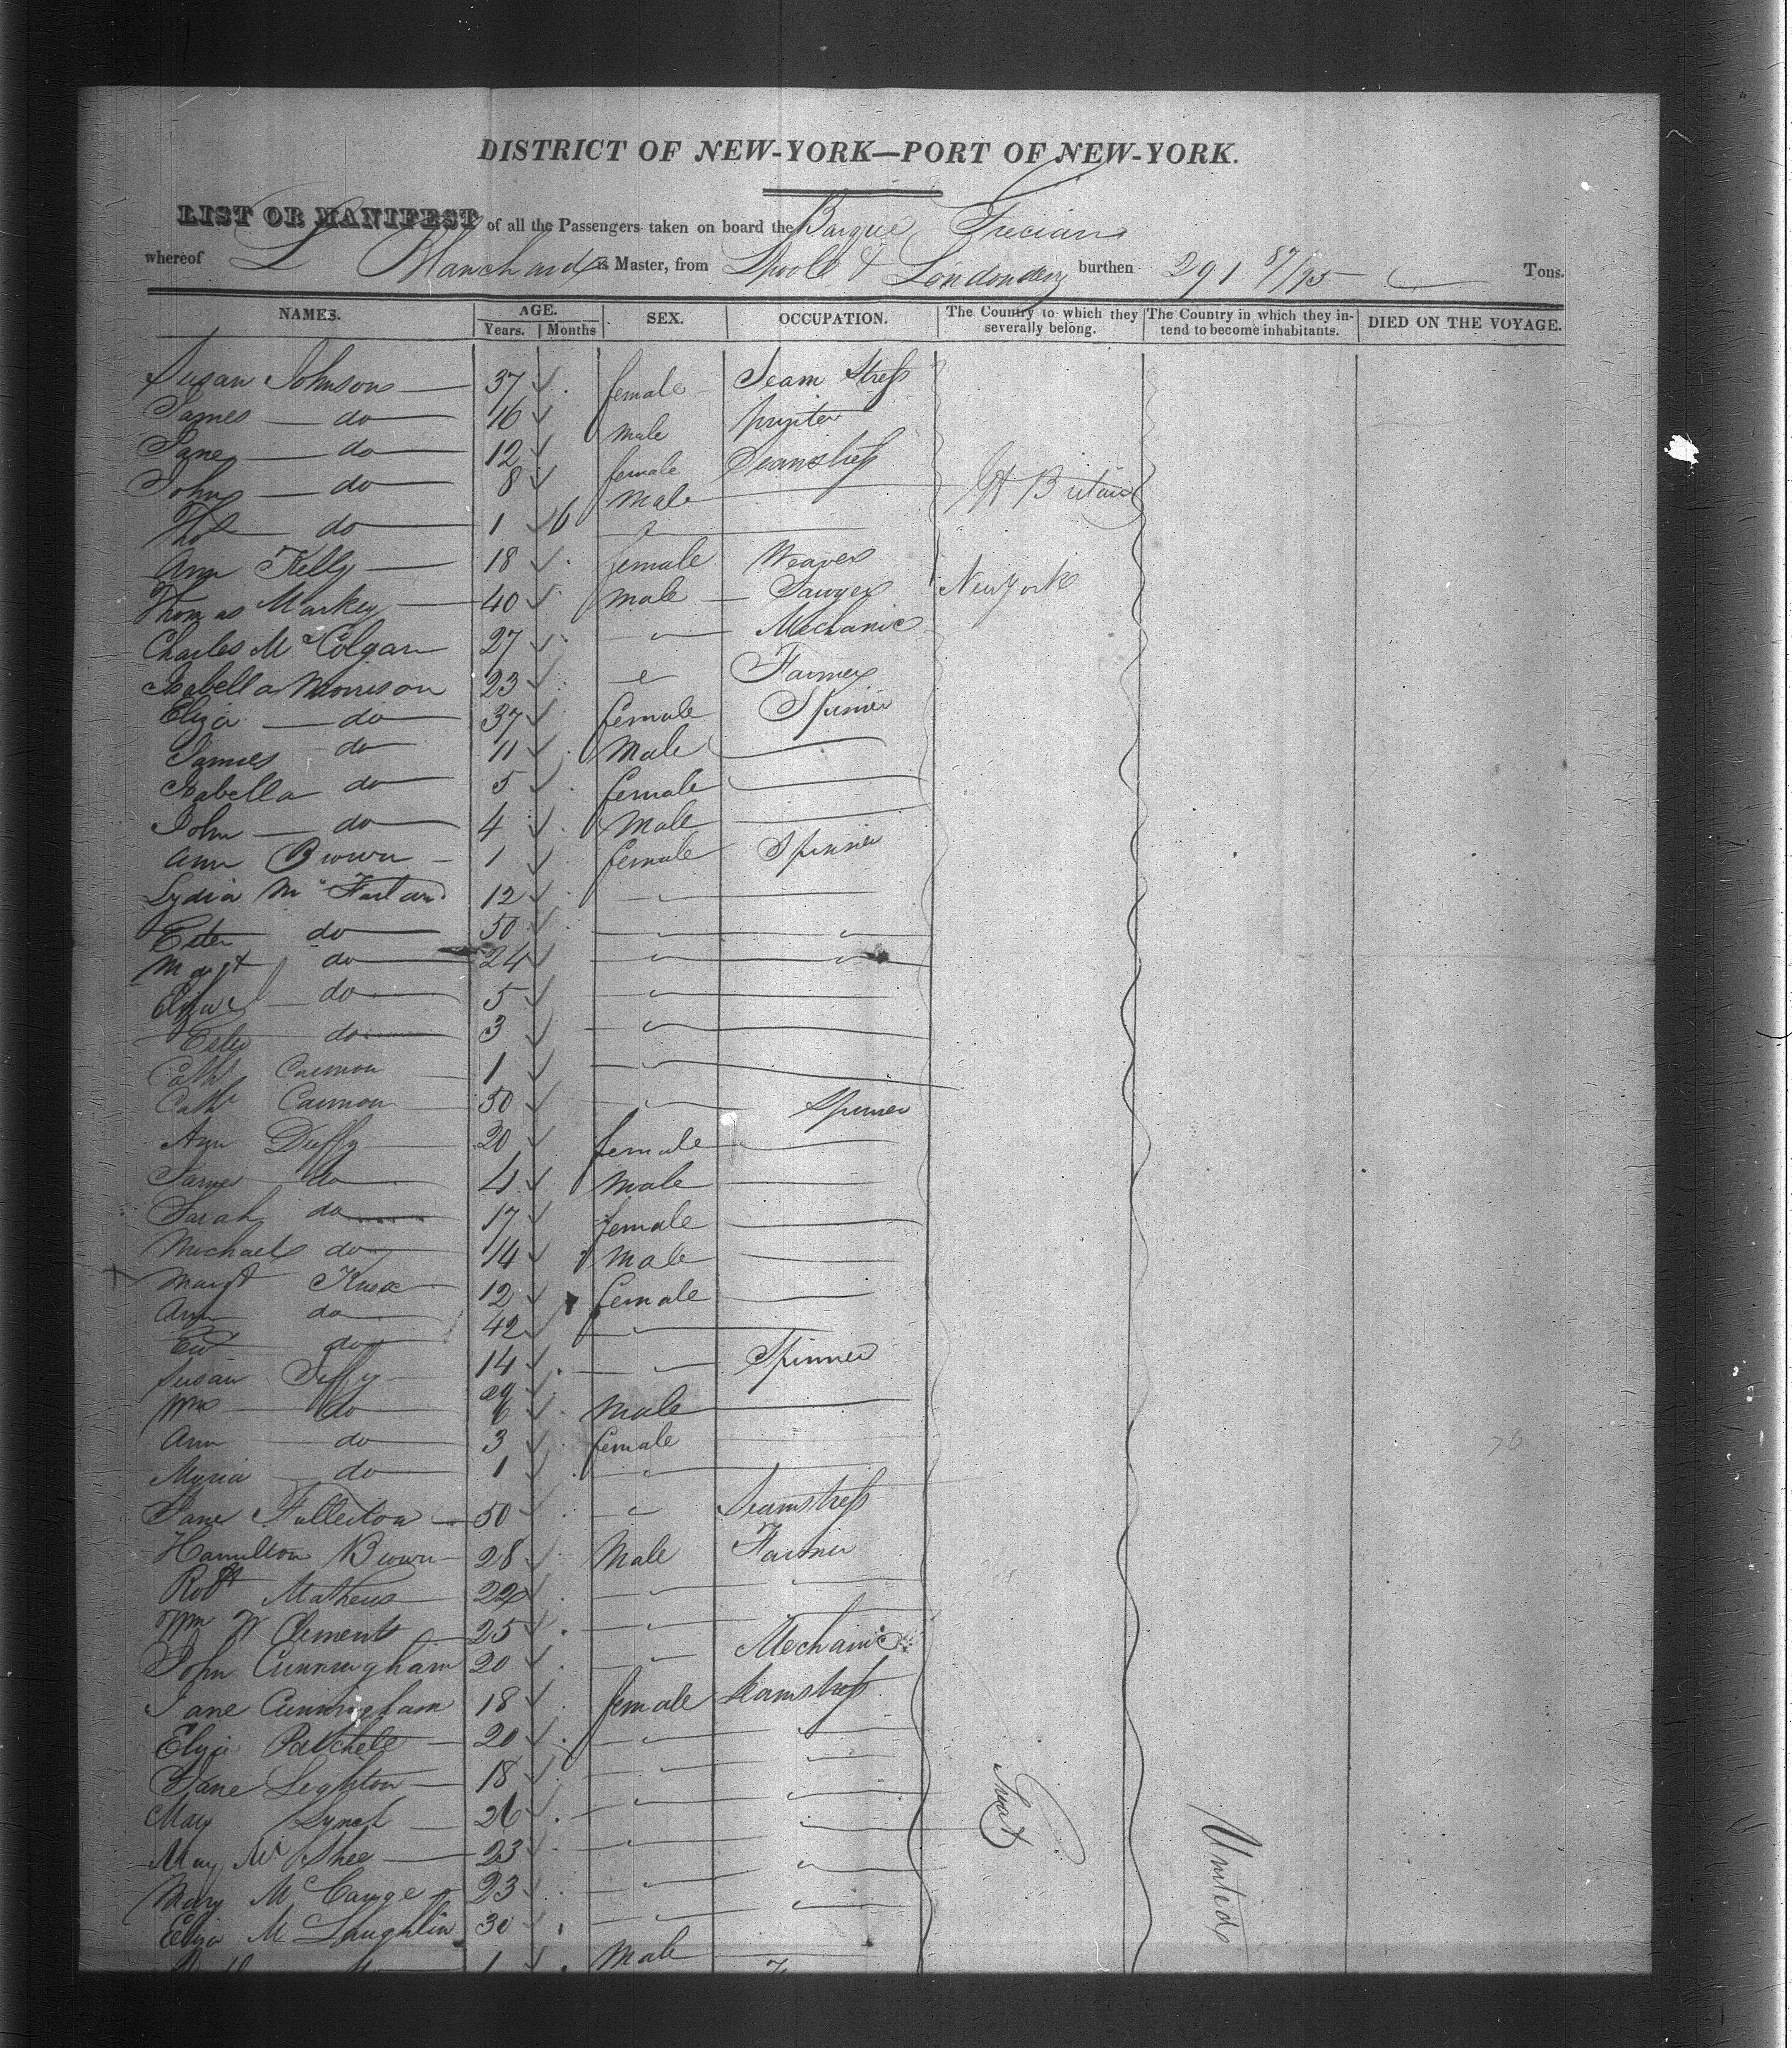 DISTRICT OF NEW-YORK—PORT OF NEW-YORK.
LIST OR MANIFEST of all the Passengers taken on board the Barque
whereof L Blanchard is Master, from Lpoole & Londonderry burthen 291 87/95 Tons.
NAMES. AGE. SEX. OCCUPATION. The Country to which they severally belong. The Country in which they intend to become inhabitants. DIED ON THE VOYAGE.
Years. Months
Susan Johnson 37 female Seam Stress
James do 16 male
Jane do 12 female Seamstress
John do 8 male Gt Britain
Thos do 1 6 "
Ann Kelly 18 female Weaver
Thomas Markey 40 male Sawyer New York
Charles Mc Colgan 27 " Mechanic
Isabella Morrison 23 " Farmer
Eliza do 37 female Spinner
James do 11 male
Isabella do 5 female
John do 4 male
Ann Brown 1 female Spinner
Lydia Mc Farland 12 "
Ester do 50 " "
Margt do 24 " "
Eliza do 5 "
Ester do 3 "
Cath 1 "
Cath 50 " Spinner
Ann Duffy 20 female
James do 4 male
Sarah do 17 female
Michael do 14 male
Margt 12 female
Ann do 42 "
do 14 " Spinner
Susan 29
Wm do 6 male
Ann do 3 female
do 1 "
Jane Fullerton 50 " Seamstress
Hamilton Brown 28 male Farmer
Robt Mathews 22 " "
Wm W Clements 25 "
John Cunningham 20 " Mechanic
Jane Cunningham 18 female Seamstress
Eliza 20 " "
Jane Leighton 18 " "
Mary Lynch 26 " "
May Mc Shee 23 "
Mary Mc 23 " "
Eliza Mc Laughlin 30 " "
1 male
Great
United